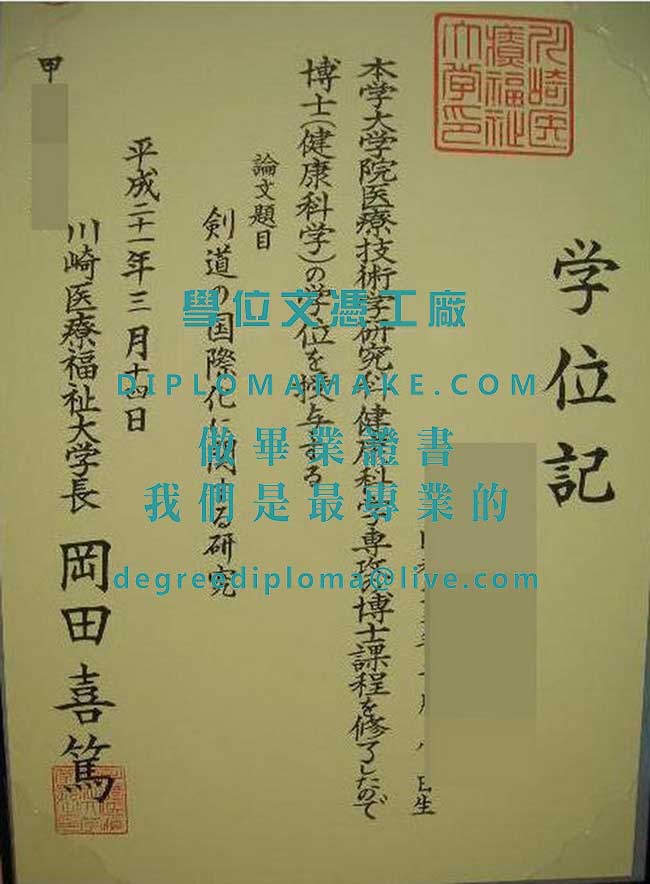 川崎医
療福祉
大学印
学位記
生
本学大学院医療技術学研究科健康科学専攻博士課程を修了したので
博士(健康科学)の学位を授与する
論文題目
剣道の国際化に関する研究
平成二十一年三月十四日
川崎医療福祉大学長 岡田喜篤
甲
學位文憑工廠
DIPLOMAMAKE.COM
做畢業證書
我們是最專業的
degreediploma@live.com